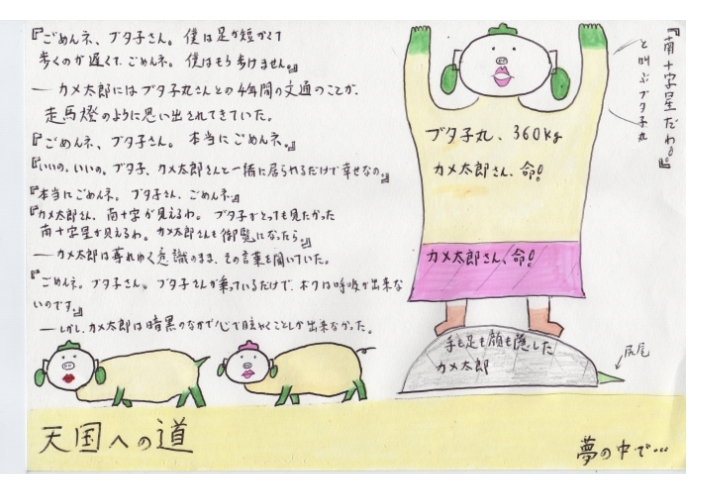 『ごめんネ、ブタ子さん。僕は足が短かくて
歩くのが遅くて、ごめんネ。僕はもう歩けません。』
― カメ太郎にはブタ子丸さんとの4年間の文通のことが、
走馬燈のように思い出されてきていた。
『ごめんネ、ブタ子さん。本当にごめんネ。』
『いいの。いいの。ブタ子、カメ太郎さんと一緒に居られるだけで幸せなの。』
『本当にごめんネ。ブタ子さん、ごめんネ』
『カメ太郎さん、南十字が見えるわ。ブタ子がとっても見たかった
南十字星が見えるわ。カメ太郎さんも御覧になったら。』
― カメ太郎は薄れゆく意識のまま、その言葉を聞いていた。
『ごめんネ。ブタ子さん。ブタ子さんが乗っているだけで、ボクは呼吸が出来な
いのです。』
― しかし、カメ太郎は暗黒のなかで心で呟やくことしか出来なかった。
『南十字星だわ!』
と叫ぶブタ子丸
ブタ子丸、360kg
カメ太郎さん、命!
カメ太郎さん、命!
手も足も顔も隠した
カメ太郎
尻尾
天国への道
夢の中で…